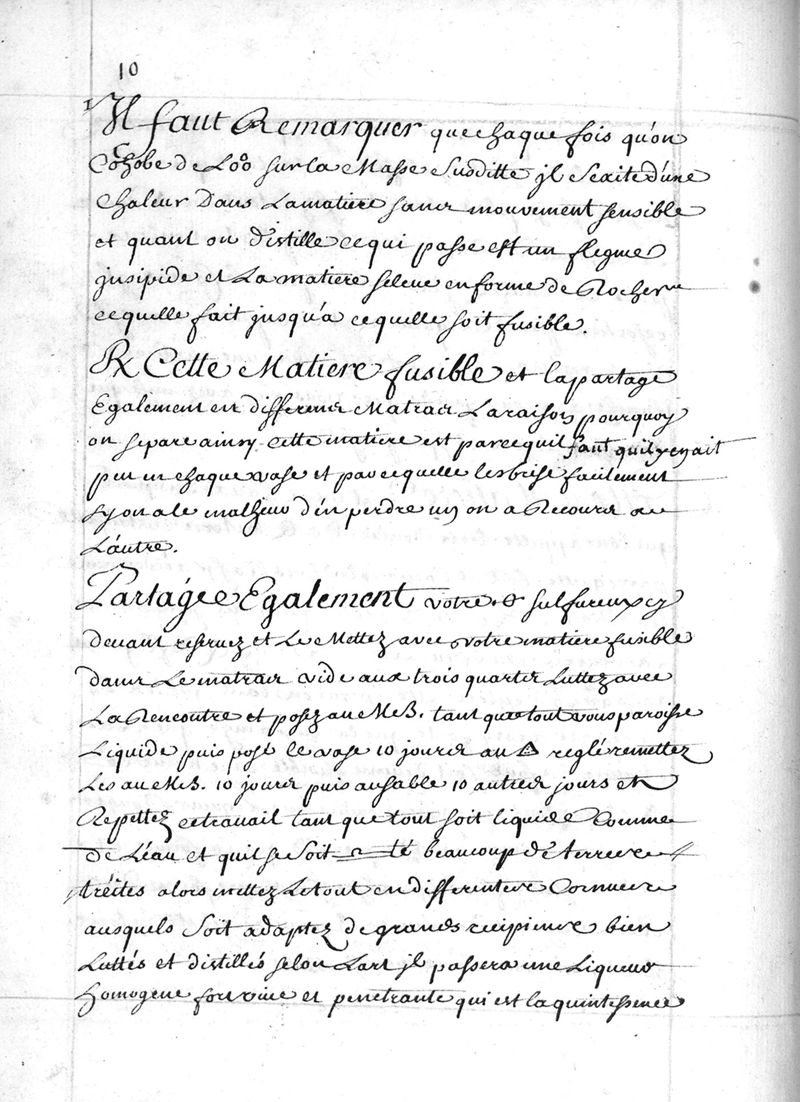 10
Il faut Remarquer que chaque fois qu'on
Cohobe de L'oo sur la Masse Susditte jl sexite d'une
Chaleur Dans Lamatiere sans mouvement sensible
et quant on distille ce qui passe est un flegme
jnsipide et La matiere seleve en forme de Rocher
ce quelle fait jusqu'a ce quelle soit fusible.
Rx Cette Matiere fusible et la partage
Egalement en differens Matras La raison pourquoy
on separe ainsy cette matiere est parce quil faut quil y en ait
peu en chaque vase et parce quelle les brise facilement
sy on a le malheur d'en perdre un on a Recours a
L'autre.
Partagée Egalement votre sulfureux cy
devant reservez et Le Mettez avec votre matiere fusible
dans Le matras vide aux trois quarts Luttez avec
La Rencontre et posez au M.B. tant que tout vous paroisse
Liquide puis posé le vase 10 jours au 🜂 reglé remettez
Les au M.B. 10 jours puis au sable 10 autres jours et
Repettez ce travail tant que tout soit liquide Comme
De L'éau et quil se Soit beaucoup de terres
alors mettez Le tout en differentes Cornues
ausquels Soit adaptez de grands recipiens bien
Luttés et distillés selon L'art jl passera une Liqueur
homogene fort vive et penetrante qui est la quintessence